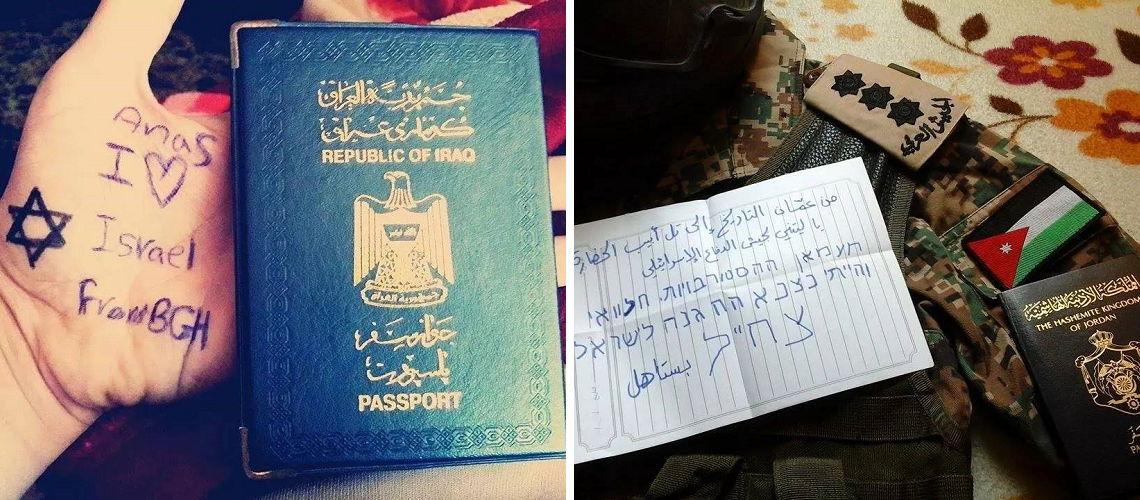 Anas
I
Israel
from BGH
جمهورية العراق
كۆماری عێراق
REPUBLIC OF IRAQ
جمهورية العراق
جواز سفر
پاسپۆرت
PASSPORT
الجيش العربي
من عمّان التاريخ إلى تل أبيب الحضارة
يا ليتني بجيش الدفاع الإسرائيلي
מעמאן ההסטורית
והייתי בצבא ההגנה לישראל
צה״ל
بستاهل
المملكة الأردنية الهاشمية
THE HASHEMITE KINGDOM
OF JORDAN